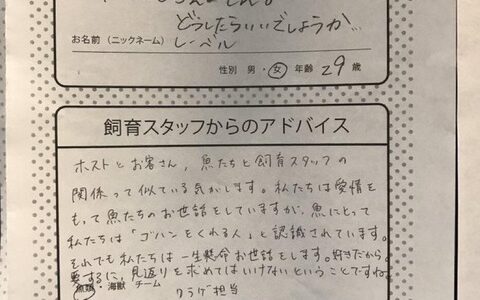 どうしたらいいでしょうか…
お名前（ニックネーム） レーベル
性別 男・女 年齢 29 歳
飼育スタッフからのアドバイス
ホストとお客さん、魚たちと飼育スタッフの
関係って似ている気がします。私たちは愛情を
もって魚たちのお世話をしていますが、魚にとって
私たちは「ゴハンをくれる人」と認識されています。
それでも私たちは一生懸命お世話をします。好きだから。
要するに、見返りを求めてはいけないということですね。
魚類・海獣 チーム
クラゲ担当